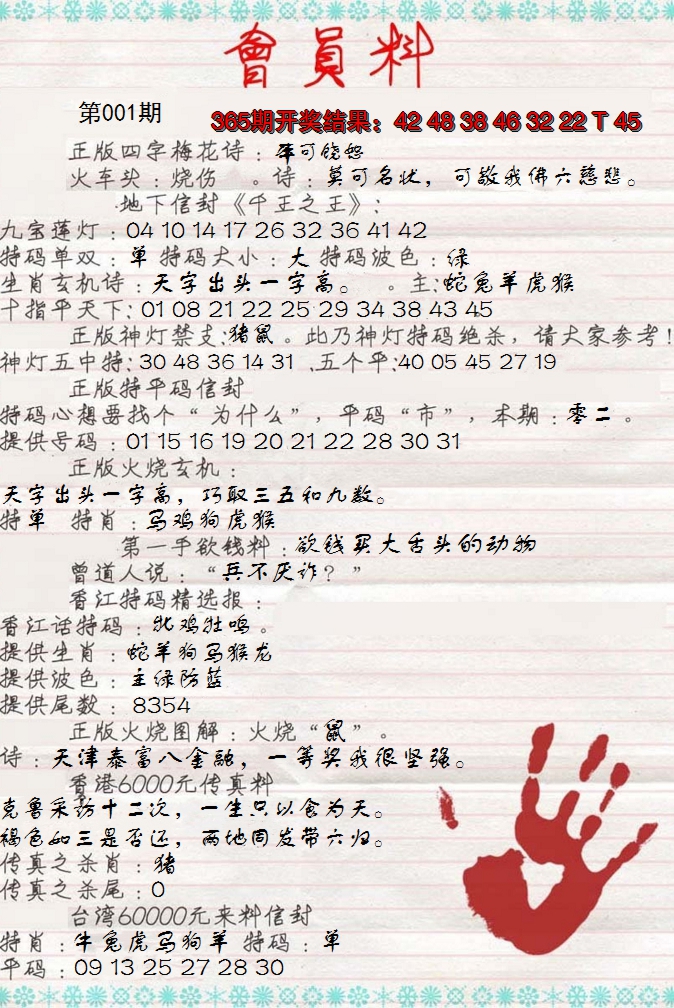 會員料
第001期
365期开奖结果：42 48 38 46 32 22 T 45
正版四字梅花诗：罪可饶恕
火车头：烧伤 。诗：莫可名状，可敬我佛六慈悲。
地下信封《千王之王》：
九宝莲灯：04 10 14 17 26 32 36 41 42
特码单双：单 特码大小：大 特码波色：绿
生肖玄机诗：天字出头一字高。 。主：蛇兔羊虎猴
十指平天下：01 08 21 22 25 29 34 38 43 45
正版神灯禁支：猪鼠。此乃神灯特码绝杀，请大家参考！
神灯五中特：30 48 36 14 31 、五个平：40 05 45 27 19
正版特平码信封
特码心想要找个“为什么”，平码“市”，本期：零二。
提供号码：01 15 16 19 20 21 22 28 30 31
正版火烧玄机：
天字出头一字高，巧取三五和九数。
特单 特肖：马鸡狗虎猴
第一手欲钱料：欲钱买大舌头的动物
曾道人说：“兵不厌诈？”
香江特码精选报：
香江话特码：牝鸡牡鸣。
提供生肖：蛇羊狗马猴龙
提供波色：主绿防蓝
提供尾数：8354
正版火烧图解：火烧“鼠”。
诗：天津泰富八金融，一等奖我很坚强。
香港6000元传真料
克鲁采访十二次，一生只以食为天。
褐色如三是否还，两地同发带六归。
传真之杀肖：猪
传真之杀尾：0
台湾60000元来料信封
特肖：牛兔虎马狗羊 特码：单
平码：09 13 25 27 28 30